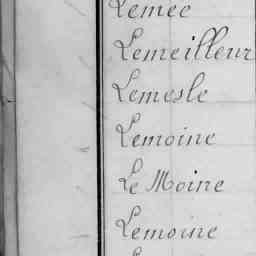 Lemée
Lemeilleur
Lemesle
Lemoine
Le Moine
Lemoine